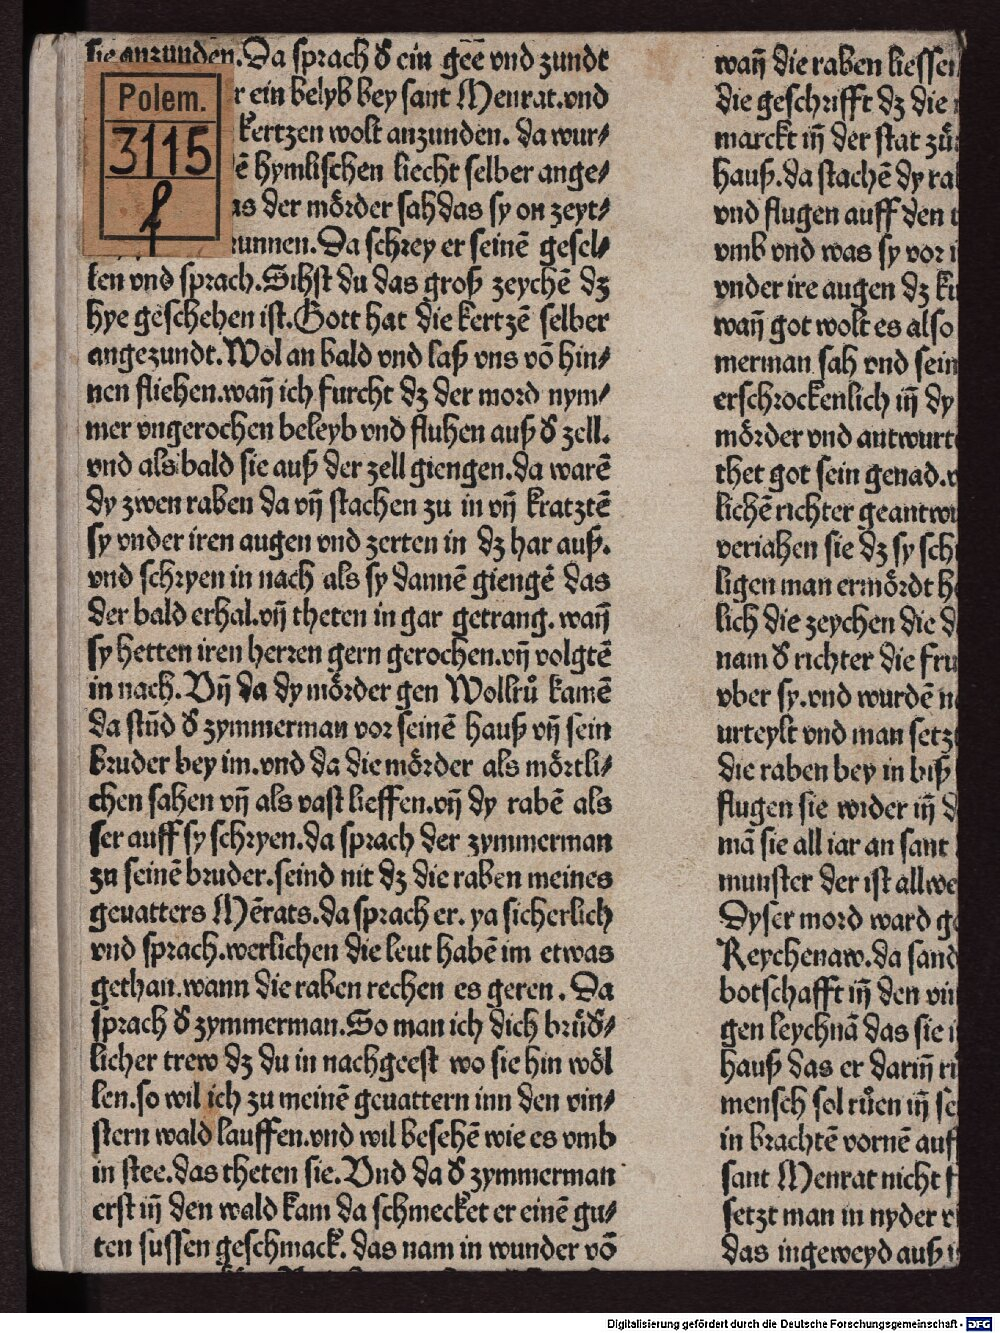 sie anzunden. Da sprach d̕ ein geē vnd zundt
Polem.
3115
f
r ein belyb bey sant Menrat. vnd
kertzen wolt anzunden. da wur⸗
ē hymlischen liecht selber ange⸗
as der moͤrder sahdas sy on zeyt⸗
runnen. Da schrey er seinē gesel⸗
len vnd sprach. Sihst du das groß zeychē dz
hye geschehen ist. Gott hat die kertzē selber
angezundt. Wol an bald vnd laß vns vō hin⸗
nen fliehen. wañ ich furcht dz der mord nym⸗
mer vngerochen beleyb vnd fluhen auß d̕ zell.
vnd als bald sie auß der zell giengen. da warē
dy zwen raben da vñ stachen zu in vñ kratztē
sy vnder iren augen vnd zerten in dz har auß.
vnd schryen in nach als sy dannē giengē das
der bald erhal. vñ theten in gar getrang. wañ
sy hetten iren herren gern gerochen. vñ volgtē
in nach. Vñ da dy moͤrder gen Wolrů kamē
da stůd d̕ zymmerman vor seinē hauß vñ sein
bruder bey im. vnd da die moͤrder als moͤrtli⸗
chen sahen vñ als vast lieffen. vñ dy rabē als
ser auff sy schryen. da sprach der zymmerman
zu seinē bruder. seind nit dz die raben meines
geuatters Mērats. da sprach er. ya sicherlich
vnd sprach. werlichen die leut habē im etwas
gethan. wann die raben rechen es geren. Da
sprach d̕ zymmerman. So man ich dich bruͤd̕⸗
licher trew dz du in nachgeest wo sie hin woͤl
len. so wil ich zu meinē geuattern inn den vin⸗
stern wald lauffen. vnd wil besehē wie es vmb
in stee. das theten sie. Vnd da d̕ zymmerman
erst iñ den wald kam da schmecket er einē gu⸗
ten sussen geschmack. das nam in wunder vō
wañ die raben liessen
die geschrifft dz die
marckt iñ der stat zů
hauß. da stachē dy ra
vnd flugen auff den
vmb vnd was sy vor
vnder ire augen dz
wañ got wolt es also
merman sah vnd sein
erschrockenlich iñ dy
moͤrder vnd antwurt
thet got sein genad.
lichē richter geantwu
veriahen sie dz sy sch
ligen man ermoͤrdt h
lich die zeychen die d
nam d̕ richter die fru
vber sy. vnd wurdē
urteylt vnd man setz
die raben bey in biß
flugen sie wider iñ d
mā sie all iar an sant
munster der ist allwe
Dyser mord ward ge
Reychenaw. da sand
botschafft iñ den vin
gen leychnā das sie
hauß das er dariñ
mensch sol růen iñ se
in brachtē vornē auf
sant Menrat nicht
setzt man in nyder
das ingeweyd auß
Digitalisierung gefördert durch die Deutsche Forschungsgemeinschaft - DFG